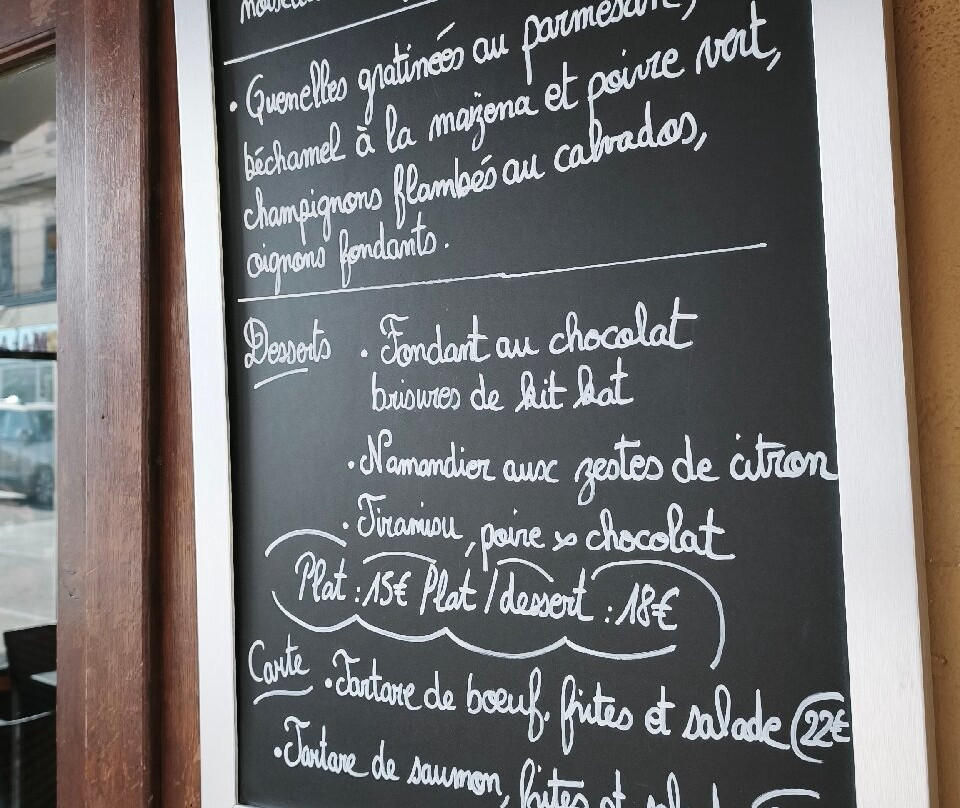 • Quenelles gratinées au parmesan,
béchamel à la maïzena et poivre vert,
champignons flambés au calvados,
oignons fondants.
Desserts • Fondant au chocolat
brisures de kit kat
• Namandier aux zestes de citron
• Tiramisu, poire x chocolat
Plat : 15€ Plat / dessert : 18€
Carte • Tartare de bœuf, frites et salade 22€
• Tartare de saumon, frites et salade